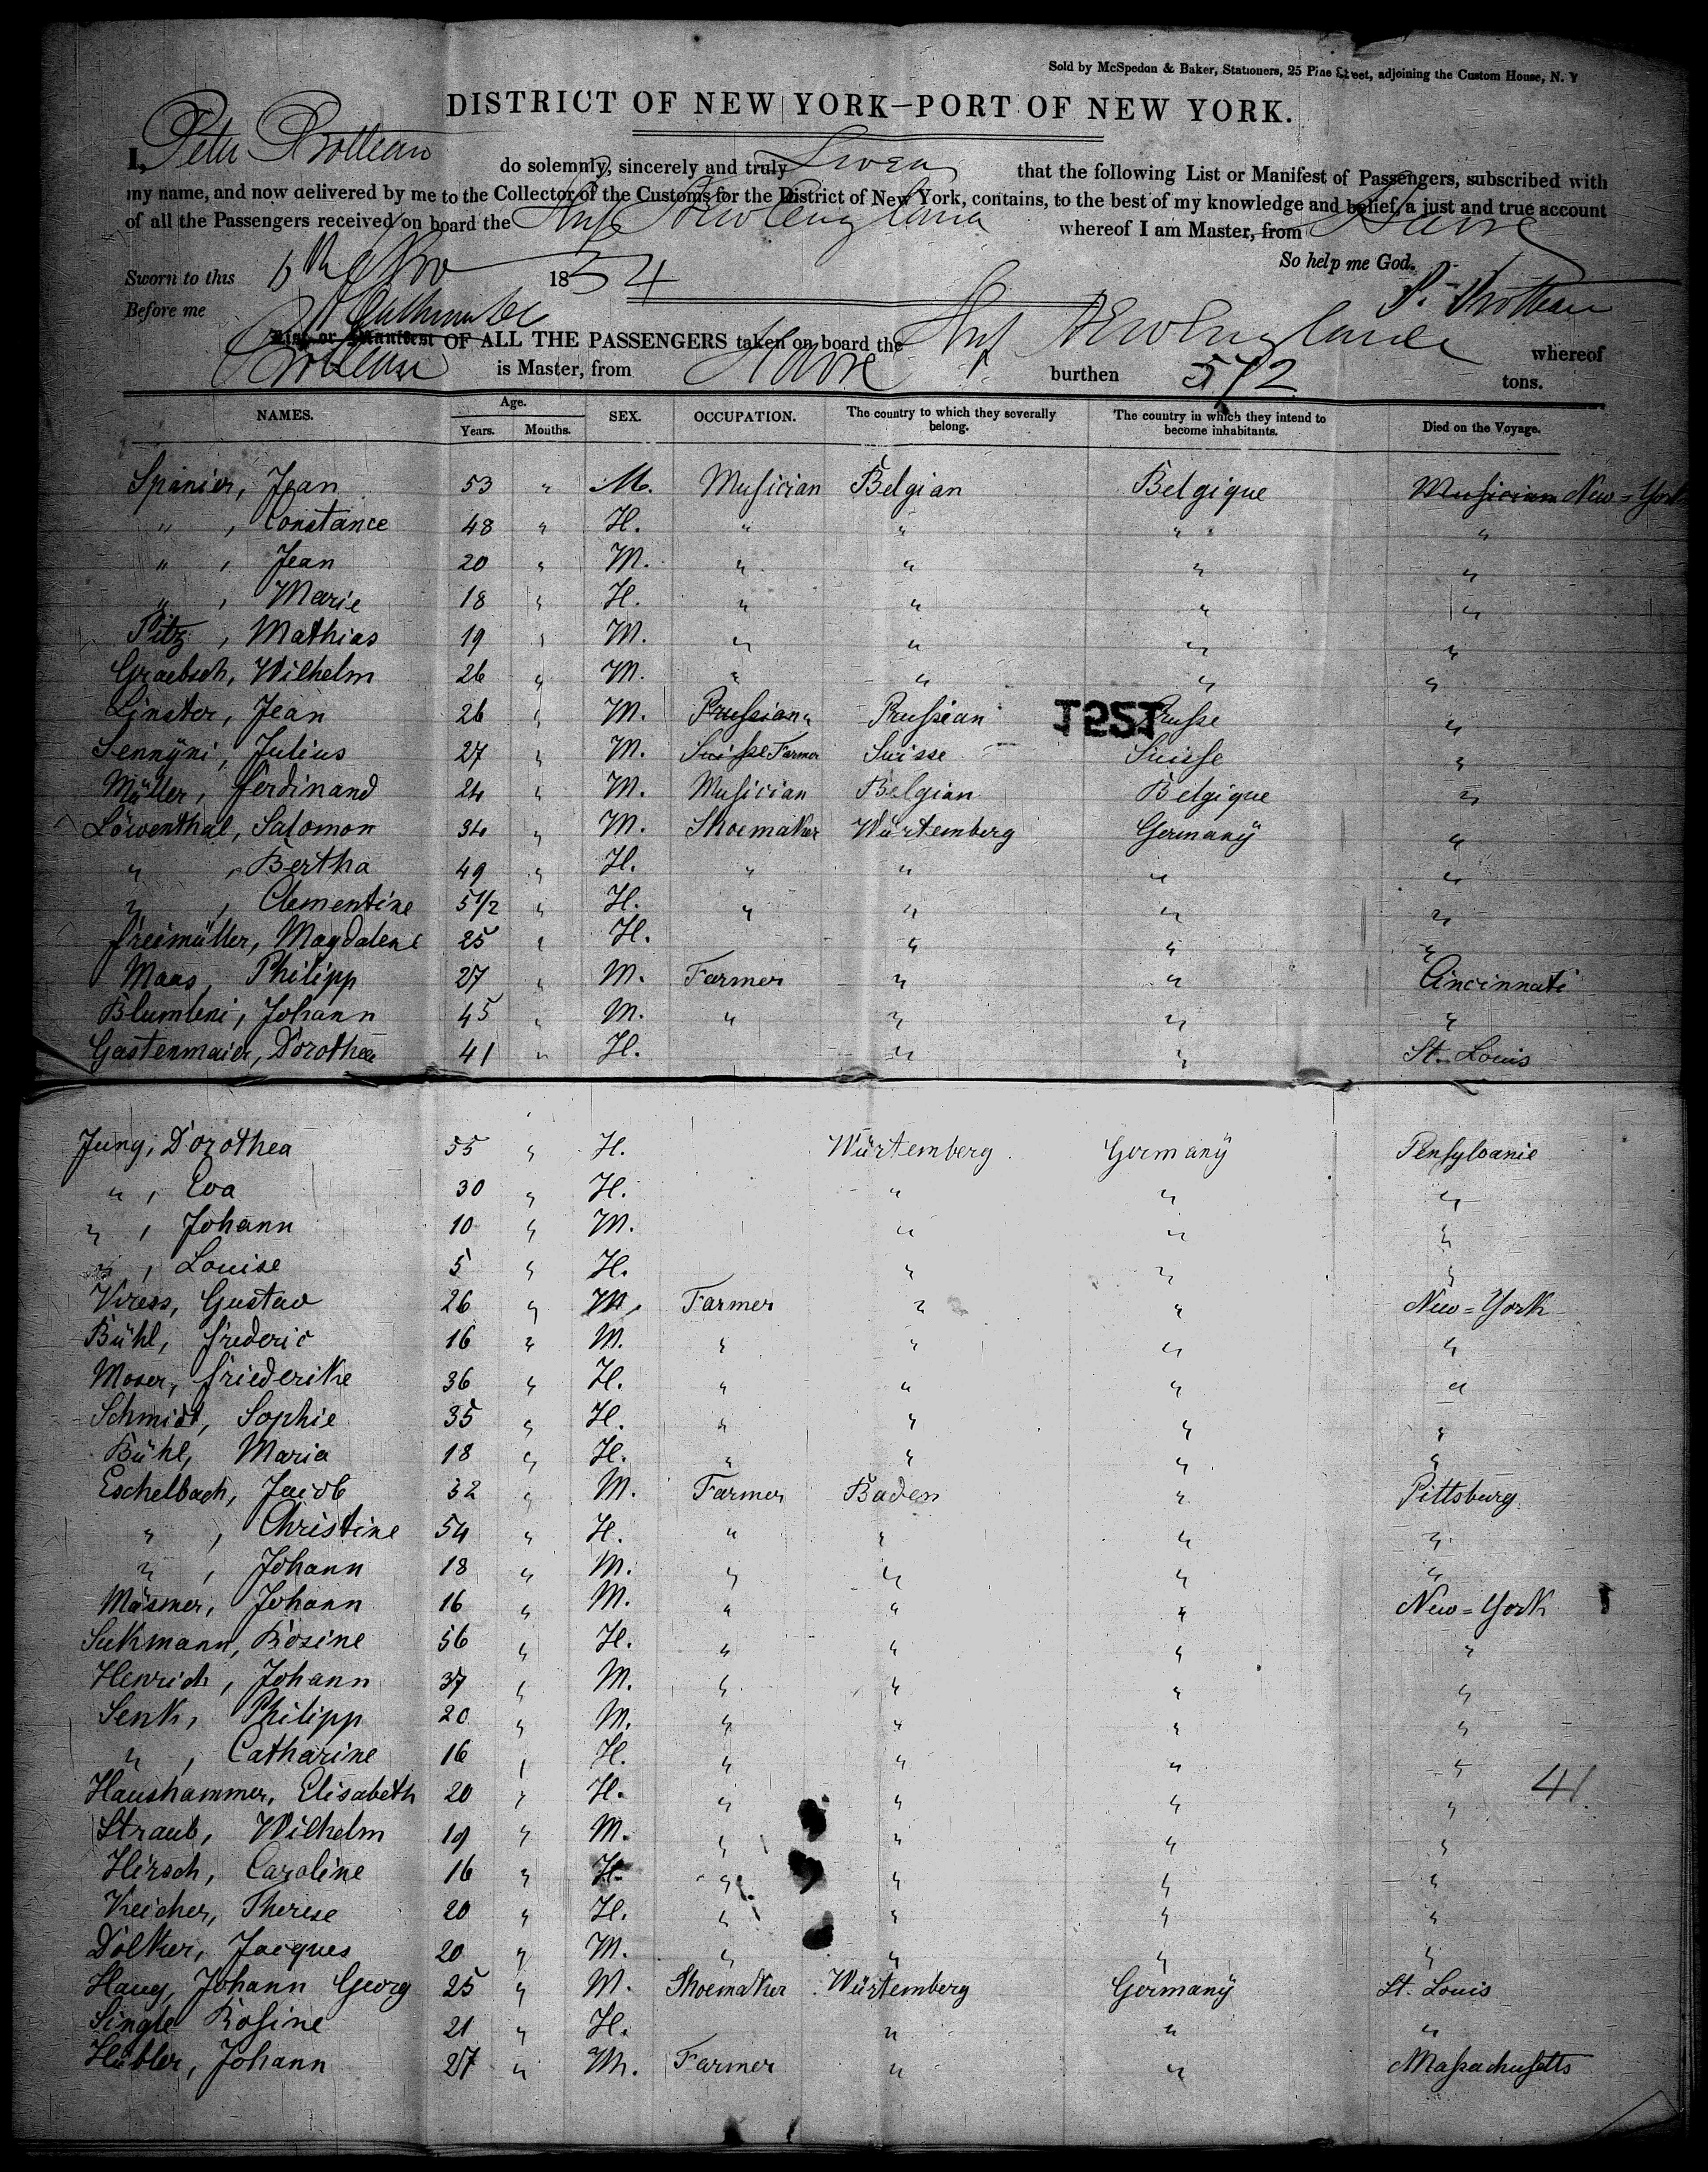 Sold by McSpedon & Baker, Stationers, 25 Pine Street, adjoining the Custom House, N. Y
DISTRICT OF NEW YORK—PORT OF NEW YORK.
I, Peter do solemnly, sincerely and truly Swear that the following List or Manifest of Passengers, subscribed with
my name, and now delivered by me to the Collector of the Customs for the District of New York, contains, to the best of my knowledge and belief, a just and true account
of all the Passengers received on board the Ship New England whereof I am Master, from Havre
So help me God.
Sworn to this 1854 P.
Before me
List or Manifest OF ALL THE PASSENGERS taken on board the Ship New England whereof
is Master, from Havre burthen 572 tons.
NAMES. Age. Years. Months. SEX. OCCUPATION. The country to which they severally belong. The country in which they intend to become inhabitants. Died on the Voyage.
Spanier, Jean 53 " M. Musician Belgian Belgique Musician New=York
" , Constance 48 " H. " " " "
" , Jean 20 " M. " " " "
" , Marie 18 " H. " " " "
Pitz, Mathias 19 " M. " " " "
Graebsch, Wilhelm 26 " M. " " " "
Linster, Jean 26 " M. Prussian " Prussian Prusse "
Sennÿni, Julius 27 " M. Suisse Farmer Suisse Suisse "
Müller, Ferdinand 24 " M. Musician Belgian Belgique "
Löwenthal, Salomon 34 " M. Shoemaker Würtemberg Germanÿ "
" , Bertha 49 " H. " " " "
" , Clementine 5 1/2 " H. " " " "
Freimüller, Magdalene 25 " H. " " "
Maas, Philipp 27 " M. Farmer " " Cincinnati
Blumleni, Johann 45 " M. " " " "
Gastenmaier, Dorothea 41 " H. " " St. Louis
Jung, Dorothea 55 " H. Würtemberg Germanÿ Pensylvanie
" , Eva 30 " H. " " "
" , Johann 10 " M. " " "
" , Louise 5 " H. " " "
Kress, Gustav 26 " M. Farmer " " New=York
Bühl, Frederic 16 " M. " " " "
Moser, Friederike 36 " H. " " " "
Schmidt, Sophie 35 " H. " " " "
Bühl, Maria 18 " H. " " " "
Eschelbach, Jacob 32 " M. Farmer Baden " Pittsburg
" , Christine 54 " H. " " " "
" , Johann 18 " M. " " " "
Mäsmer, Johann 16 " M. " " " New=York
Sukmann, Rosine 56 " H. " " " "
Henrich, Johann 37 " M. " " " "
Senk, Philipp 20 " M. " " " "
" , Catharine 16 " H. " " " "
Haushammer, Elisabeth 20 " H. " " " " 41
Straub, Wilhelm 19 " M. " " " "
Hirsch, Caroline 16 " H. " " " "
Keicher, Therese 20 " H. " " " "
Dölker, Jacques 20 " M. " " " "
Haug, Johann Georg 25 " M. Shoemaker Würtemberg Germanÿ St. Louis
Single Rosine 21 " H. " " "
Hübler, Johann 27 " M. Farmer " " Massachusetts